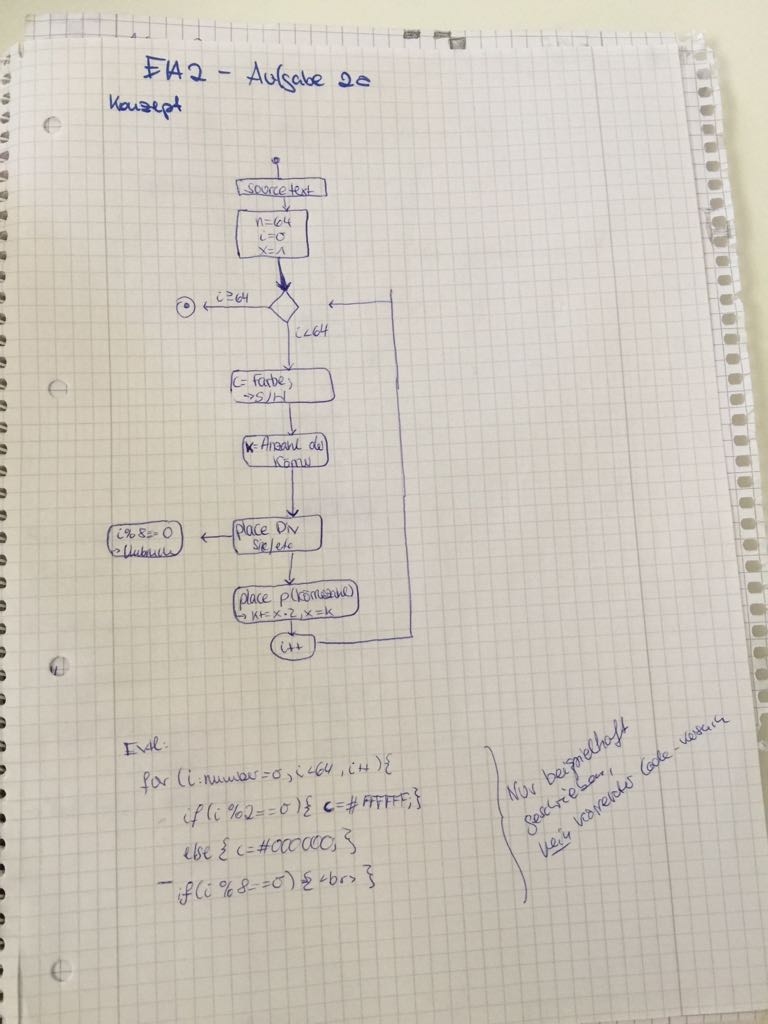 EIA2 - Aufgabe 2a
Konzept
sourcetext
n=64
i=0
x=1
i≥64
i<64
c= Farbe;
→S/W
k=Anzahl der
Körner
place Div
Size/etc
i%8==0
→Umbruch
place p(Körneranzahl)
→ k+= x·2, x=k
i++
Evtl:
for (i:number=0, i<64, i++){
if(i%2==0){ c=#FFFFFF;}
else { c=#000000;}
- if(i%8==0) {<br>}
Nur beispielhaft
geschrieben,
kein korrekter Code-Versuch